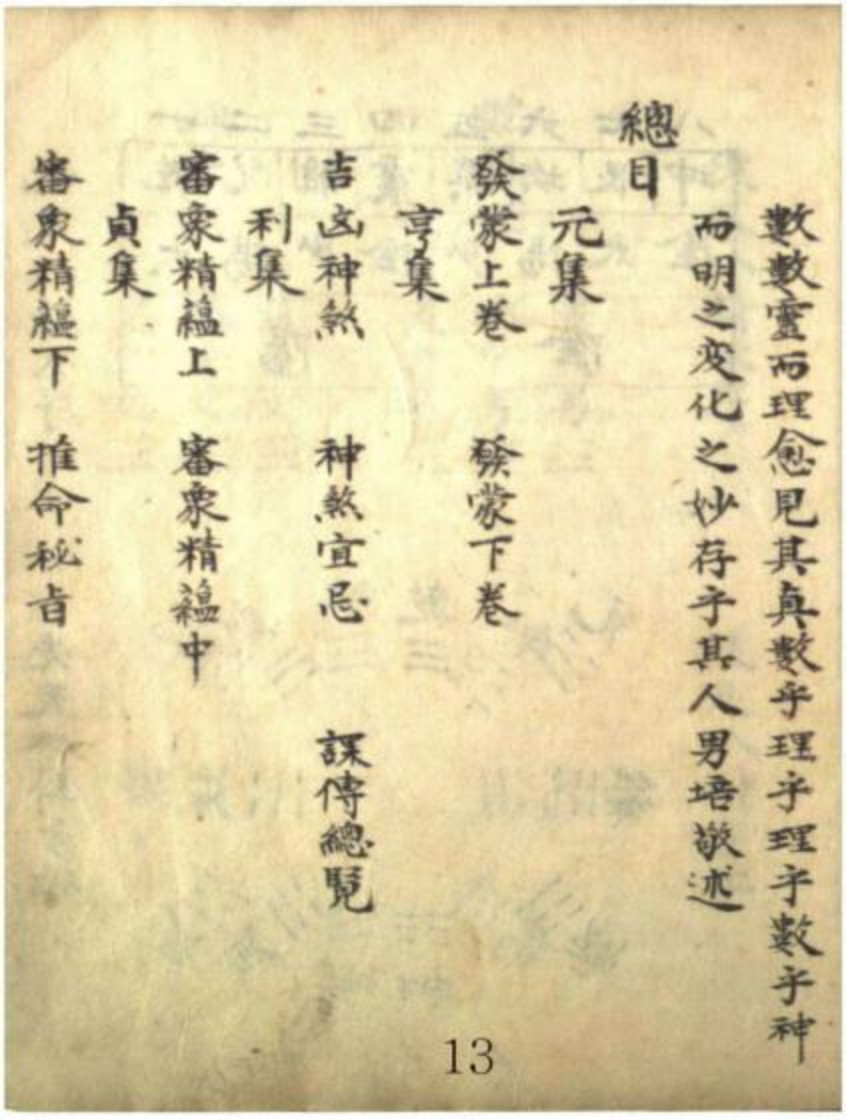 數數靈而理愈見其真數乎理乎理乎數乎神
而明之变化之妙存乎其人男培敬述
總目
元集
發蒙上卷 發蒙下卷
亨集
吉凶神煞 神煞宜忌 課傳總覽
利集
審象精蘊上 審象精蘊中
貞集
審象精蘊下 推命秘旨
13